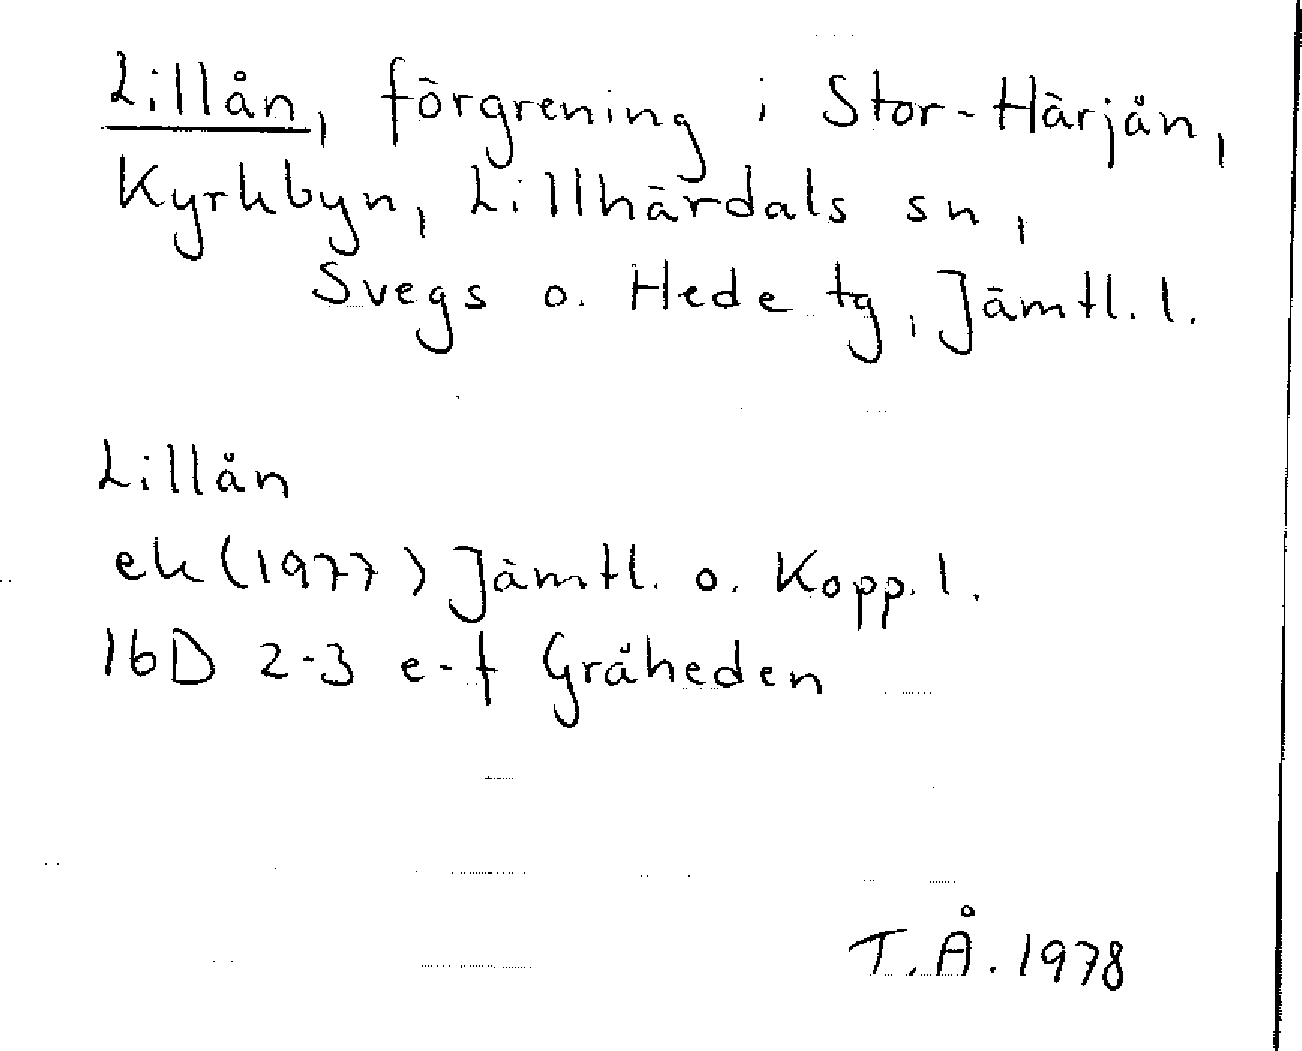 Lillån, förgrening i Stor-Härjån,
Kyrkbyn, Lillhärdals sn,
Svegs o. Hede tg, Jämtl. l.
Lillån
ek (1977) Jämtl. o. Kopp. l.
16D 2-3 e-f Gråheden
T.Å. 1978